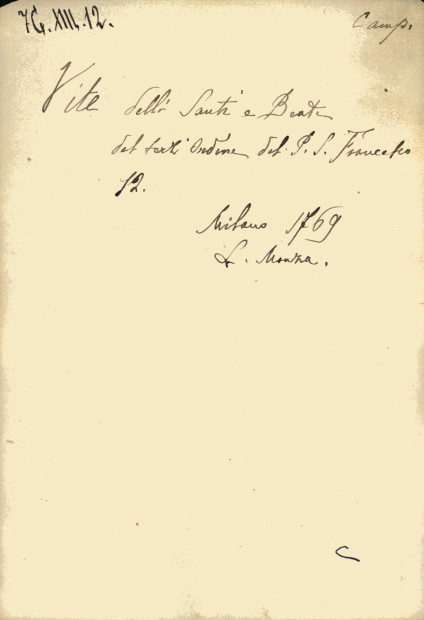 7G.XIII.12.
Camp.
Vite delli Santi e Beati
del terz' Ordine del P. S. Francesco
12.
Milano 1769
f. Monza.
C